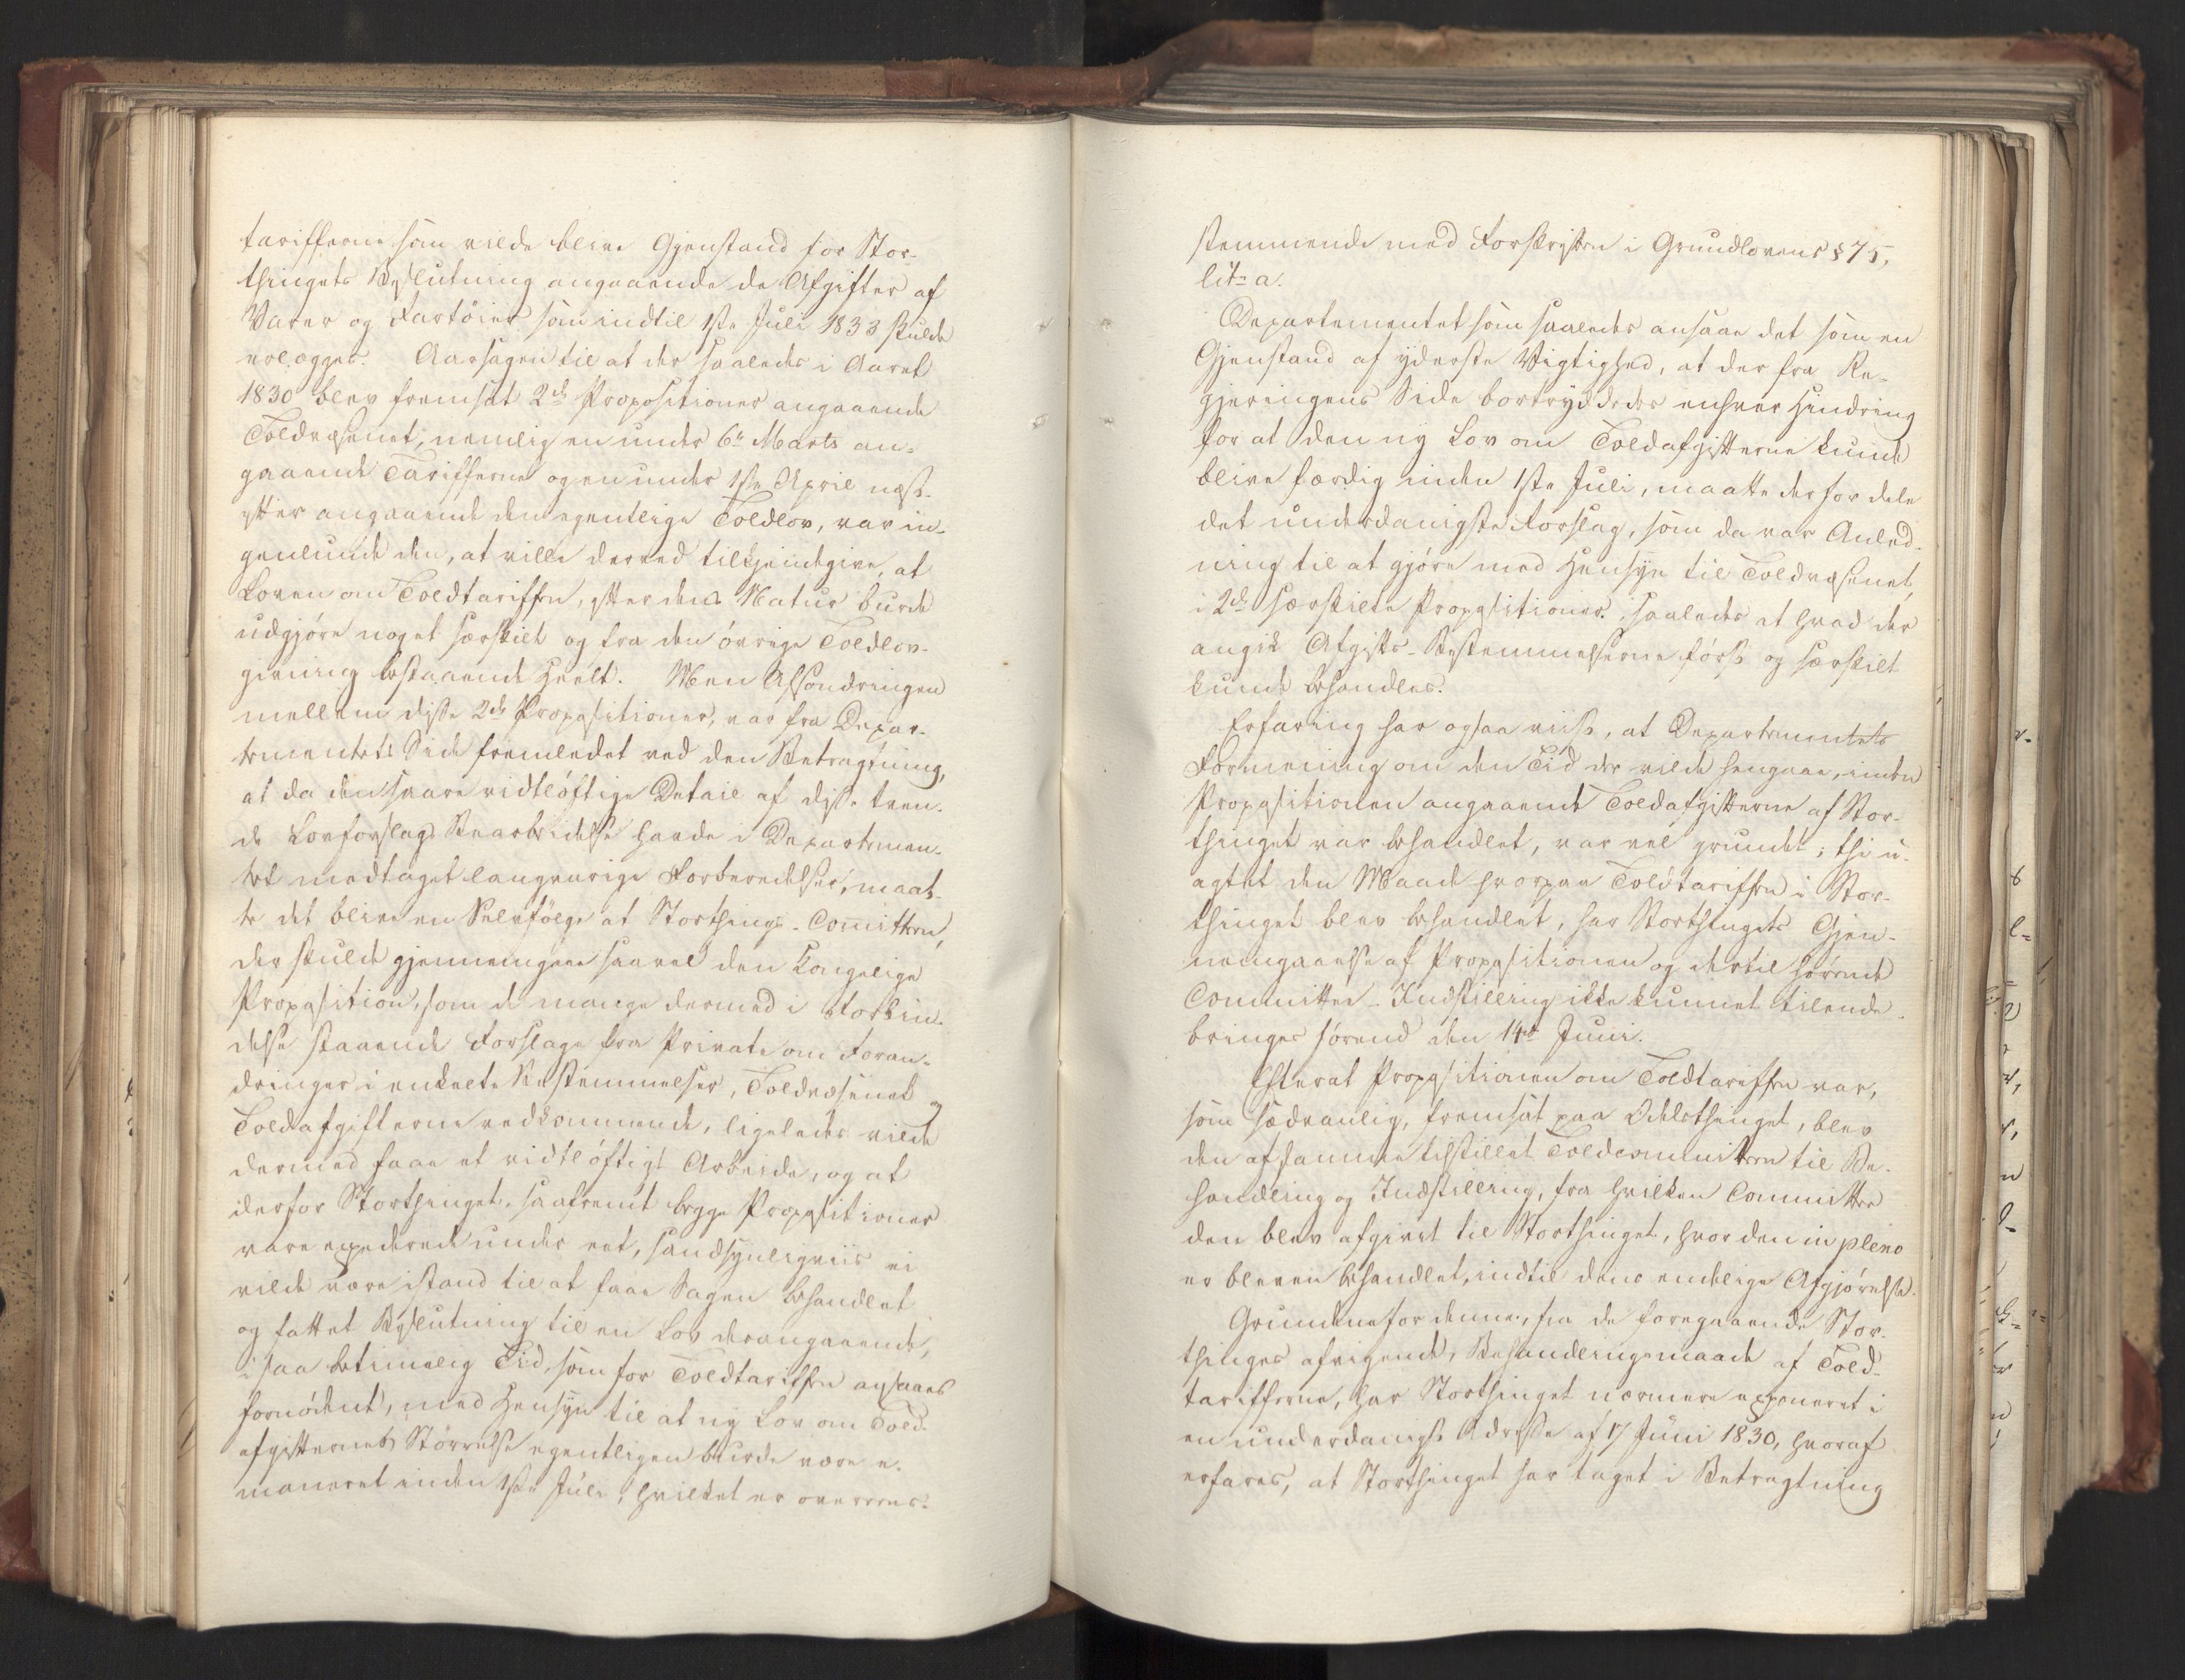 tarifferne som vilde blive Gjenstand for Stor-
thingets Beslutning angaaende de Afgifter af
Varer og Fartöier som indtil 1ste Juli 1833 skulde
erlægges. Aarsagen til at der saaledes i Aaret
1830 blev fremsat 2de Propositioner angaaende
Toldvæsenet, nemlig en under 6te Marts an-
gaaende Tarifferne og en under 1ste April næst-
efter angaaende den egentlige Toldlov, var in-
genlunde den, at ville derved tilkjendegive, at
Loven om Toldtariffen, efter dens Natur burde
udgjöre noget særskilt og fra den övrige Toldlov-
givning bestaaende Heelt. Men Afsondringen
mellem disse 2de Propositioner, var fra Depar-
tementets Side fremledet ved den Betragtning,
at da den svare vidtlöftige Detail af disse tven-
de Lovforslags Bearbeidelse havde i Departemen-
tet medtaget langvarige Forberedelser, maat-
te det blive en Selvfölge at Storthings-Comitteen,
der skulde gjennemgaae saavel den Kongelige
Proposition, som de mange dermed i Forbin-
delse staaende Forslage fra Private om Foran-
dringer i enkelte Bestemmelser, Toldvæsenet og
Toldafgifterne vedkommende, ligeledes vilde
dermed faae et vidtlöftigt Arbeide, og at
derfor Storthinget, saafremt begge Propositioner
vare expederede under eet, sandsynligviis ei
vilde være istand til at faae Sagen behandlet
og fattet Beslutning til en Lov derangaaende,
i saa betimelig Tid, som for Toldtariffen ansaaes
fornödent, med Hensyn til at ny Lov om Told-
afgifternes Störrelse egentligen burde være e-
maneret inden 1ste Juli, hvilket er overeens-
stemmende med Forskriften i Grundlovens § 75,
litr a.
Departementet som saaledes ansaae det som en
Gjenstand af yderste Vigtighed, at der fra Re-
gjeringens Side bortryddedes enhver Hindring
for at den ny Lov om Toldafgifterne kunde
blive færdig inden 1ste Juli, maatte derfor dele
det underdanigste Forslag, som da var Anled-
ning til at gjöre med Hensyn til Toldvæsenet,
i 2de særskilte Propositioner, saaledes at hvad der
angik Afgifts-Bestemmelserne först og særskilt
kunde behandles.
Erfaring har ogsaa viist, at Departementets
Formening om den Tid der vilde hengaae, inden
Propositionen angaaende Toldafgifterne af Stor-
thinget var behandlet, var vel grundet; thi u-
agtet den Maade hvorpaa Toldtariffen i Stor-
thinget blev behandlet, har Storthingets Gjen-
nemgaaelse af Propositionen og dertil hörende
Committee-Indstilling ikke kunnet tilende-
bringes förend den 14de Juni.
Efterat Propositionen om Toldtariffen var,
som sædvanlig, fremsat paa Odelsthinget, blev
den af samme tilstillet Toldcommitteen til Be-
handling og Indstilling, fra hvilken Committee
den blev afgivet til Storthinget, hvor den in pleno
er bleven behandlet, indtil dens endelige Afgjörelse.
Grundene for denne, fra de foregaaende Stor-
thinges afvigende, Behandlingsmaade af Told-
tarifferne, har Storthinget nærmere exponeret i
en underdanigst Adresse af 17 Juni 1830, hvoraf
erfares, at Storthinget har taget i Betragtning